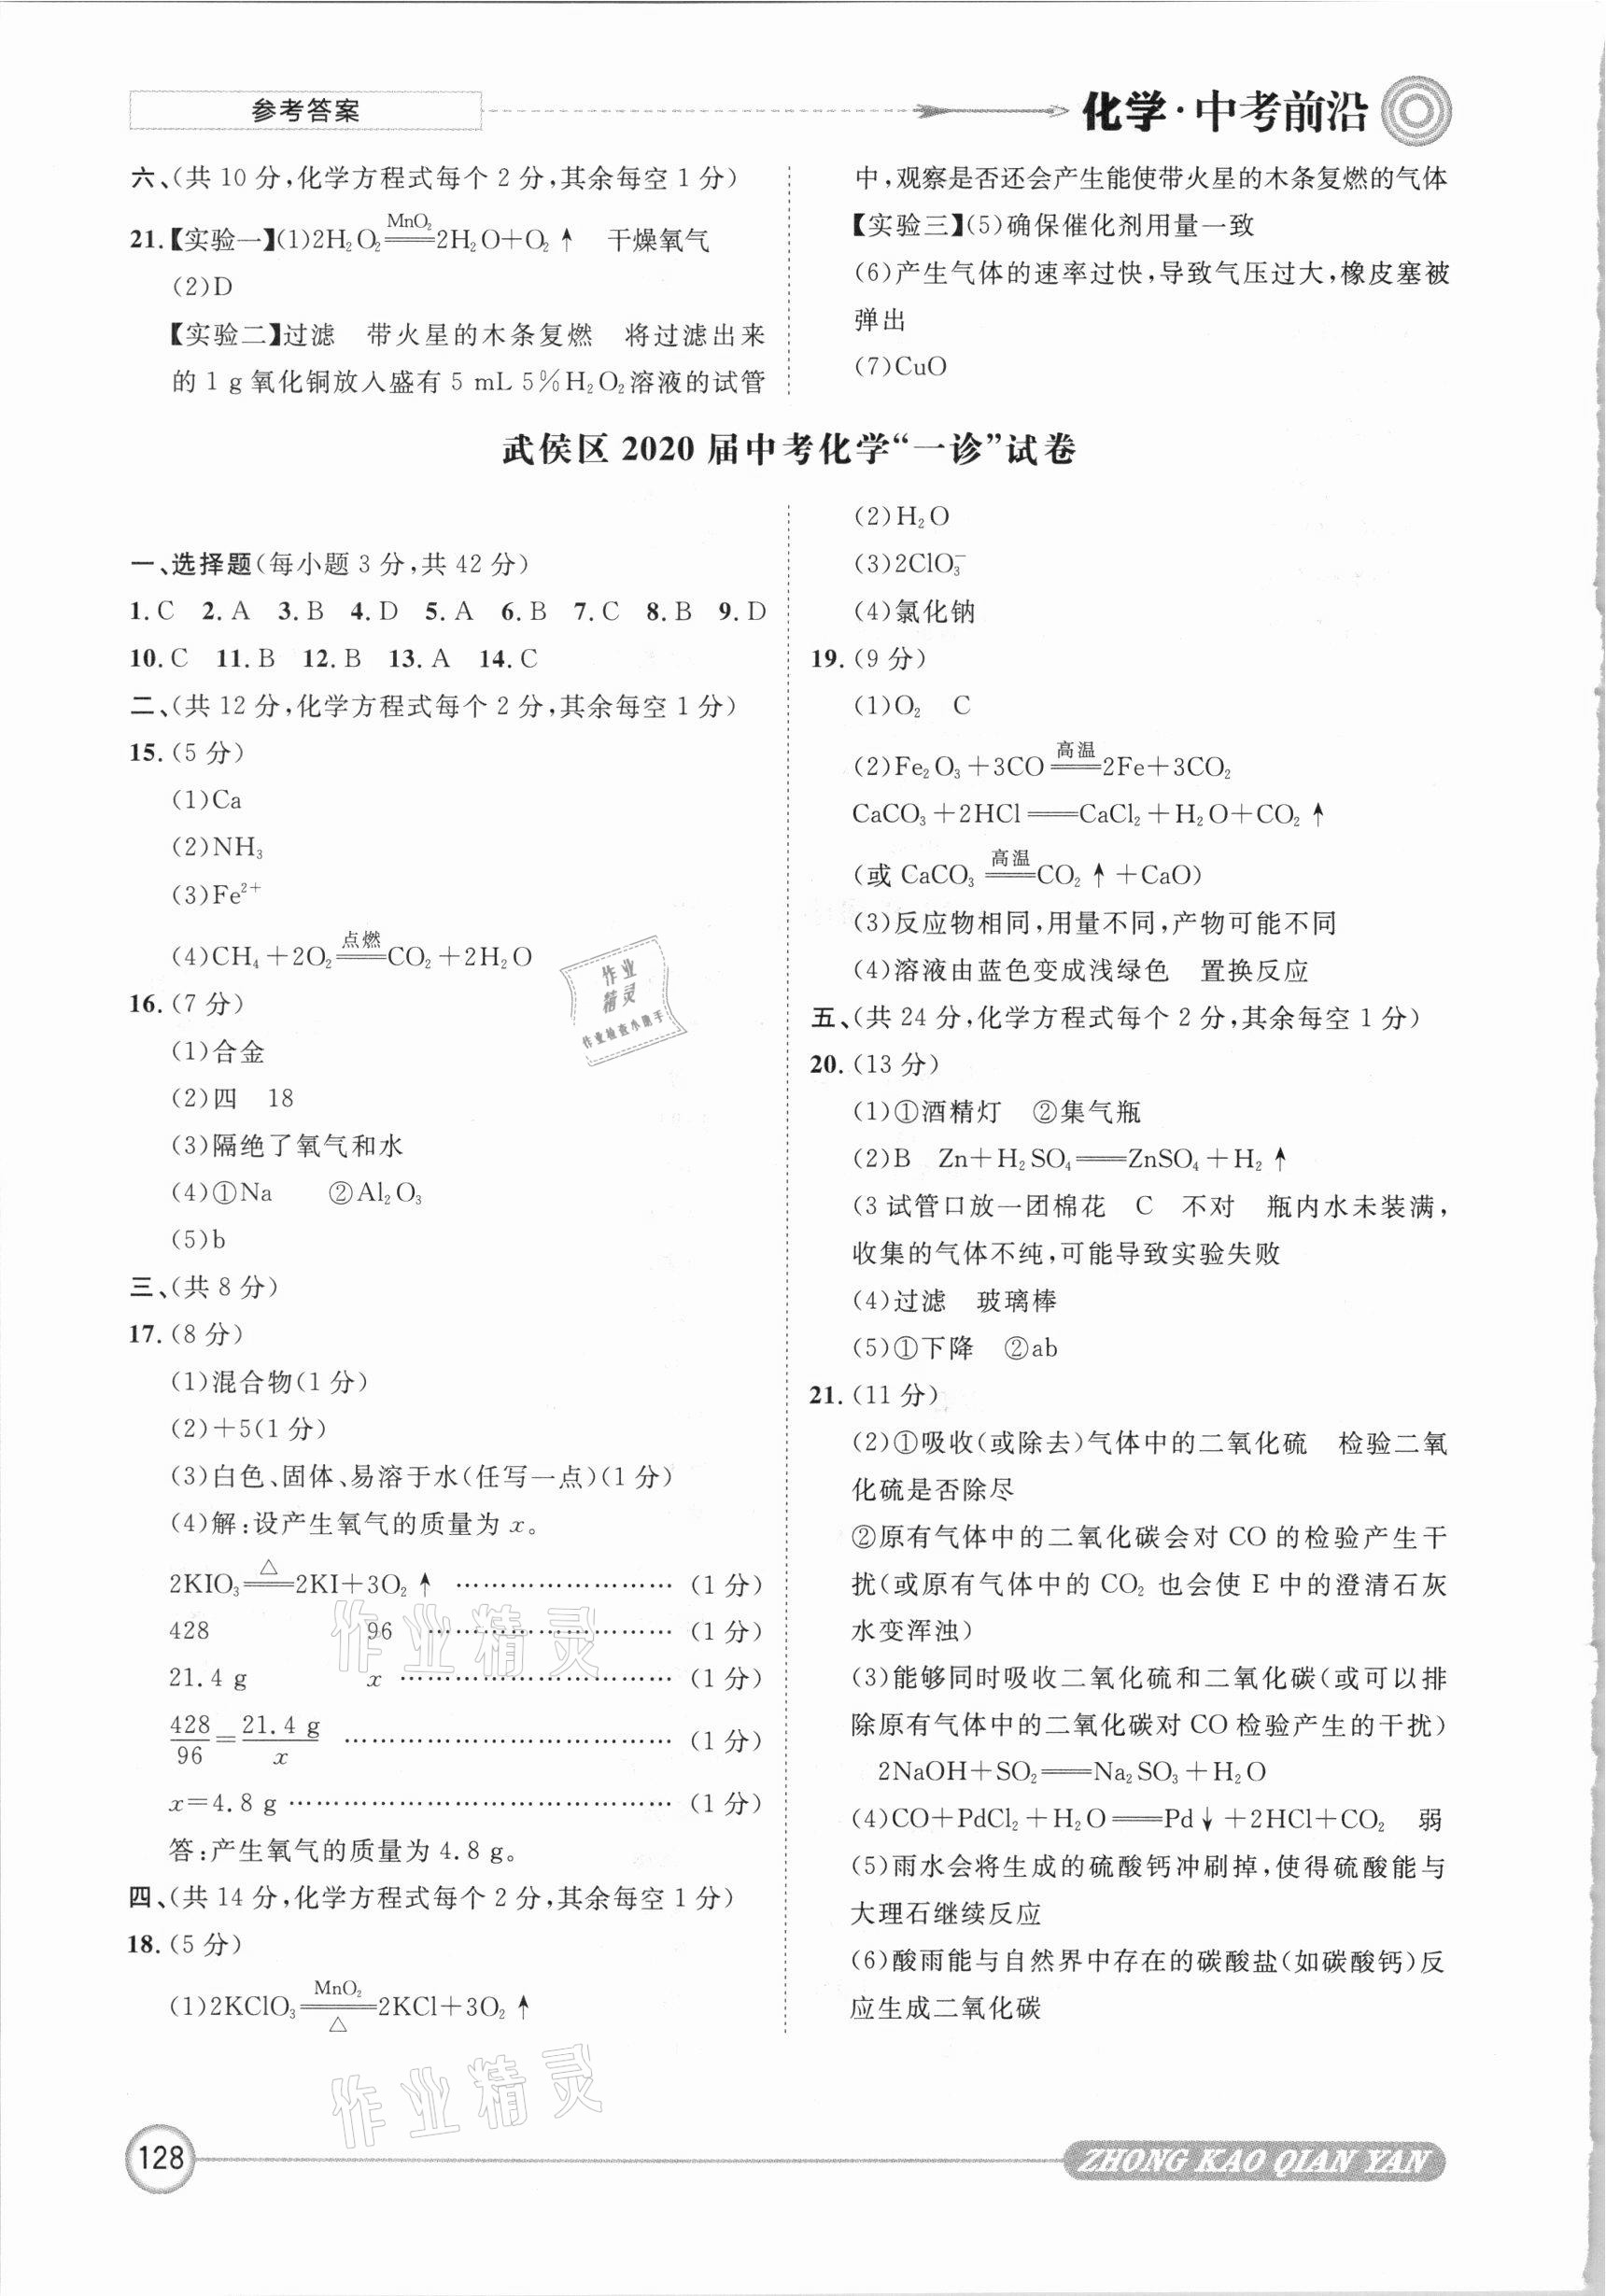 参考答案
化学·中考前沿
六、(共 10 分,化学方程式每个 2 分,其余每空 1 分)
21.【实验一】(1)2H₂O₂ ══MnO₂══ 2H₂O+O₂↑ 干燥氧气
(2)D
【实验二】过滤 带火星的木条复燃 将过滤出来
的 1 g 氧化铜放入盛有 5 mL 5%H₂O₂溶液的试管
中,观察是否还会产生能使带火星的木条复燃的气体
【实验三】(5)确保催化剂用量一致
(6)产生气体的速率过快,导致气压过大,橡皮塞被
弹出
(7)CuO
武侯区 2020 届中考化学“一诊”试卷
一、选择题(每小题 3 分,共 42 分)
1. C 2. A 3. B 4. D 5. A 6. B 7. C 8. B 9. D
10. C 11. B 12. B 13. A 14. C
二、(共 12 分,化学方程式每个 2 分,其余每空 1 分)
15. (5 分)
(1)Ca
(2)NH₃
(3)Fe²⁺
(4)CH₄+2O₂ ══点燃══ CO₂+2H₂O
16. (7 分)
(1)合金
(2)四 18
(3)隔绝了氧气和水
(4)①Na ②Al₂O₃
(5)b
三、(共 8 分)
17. (8 分)
(1)混合物(1 分)
(2)+5(1 分)
(3)白色、固体、易溶于水(任写一点)(1 分)
(4)解:设产生氧气的质量为 x。
2KIO₃ ══△══ 2KI+3O₂↑ ……………………(1 分)
428 96 ……………………(1 分)
21.4 g x ……………………(1 分)
428/96=21.4 g/x ……………………(1 分)
x=4.8 g ……………………(1 分)
答:产生氧气的质量为 4.8 g。
四、(共 14 分,化学方程式每个 2 分,其余每空 1 分)
18. (5 分)
(1)2KClO₃ ══MnO₂/△══ 2KCl+3O₂↑
(2)H₂O
(3)2ClO₃⁻
(4)氯化钠
19. (9 分)
(1)O₂ C
(2)Fe₂O₃+3CO ══高温══ 2Fe+3CO₂
CaCO₃+2HCl ══ CaCl₂+H₂O+CO₂↑
(或 CaCO₃ ══高温══ CO₂↑+CaO)
(3)反应物相同,用量不同,产物可能不同
(4)溶液由蓝色变成浅绿色 置换反应
五、(共 24 分,化学方程式每个 2 分,其余每空 1 分)
20. (13 分)
(1)①酒精灯 ②集气瓶
(2)B Zn+H₂SO₄ ══ ZnSO₄+H₂↑
(3 试管口放一团棉花 C 不对 瓶内水未装满,
收集的气体不纯,可能导致实验失败
(4)过滤 玻璃棒
(5)①下降 ②ab
21. (11 分)
(2)①吸收(或除去)气体中的二氧化硫 检验二氧
化硫是否除尽
②原有气体中的二氧化碳会对 CO 的检验产生干
扰(或原有气体中的 CO₂ 也会使 E 中的澄清石灰
水变浑浊)
(3)能够同时吸收二氧化硫和二氧化碳(或可以排
除原有气体中的二氧化碳对 CO 检验产生的干扰)
2NaOH+SO₂ ══ Na₂SO₃+H₂O
(4)CO+PdCl₂+H₂O ══ Pd↓+2HCl+CO₂ 弱
(5)雨水会将生成的硫酸钙冲刷掉,使得硫酸能与
大理石继续反应
(6)酸雨能与自然界中存在的碳酸盐(如碳酸钙)反
应生成二氧化碳
作业
精灵
作业检查小助手
作业精灵
作业精灵
128
ZHONG KAO QIAN YAN